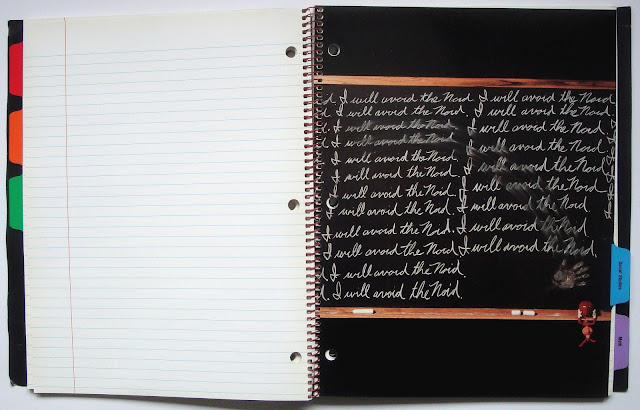 d. I will avoid the Noid I will avoid the Noid
d. I will avoid the Noid. I will avoid the Noid.
d. I will avoid the Noid. I will avoid the Noid
d. I will avoid the Noid. I will avoid the Noid.
I will avoid the Noid. I will avoid the Noid
I will avoid the Noid. I will avoid the Noid
I will avoid the Noid.
I will avoid the Noid.
I will avoid the Noid. I will avoid the Noid
I will avoid the Noid. I will avoid the Noid.
d. I will avoid the Noid.
d. I will avoid the Noid.
Social Studies
Math